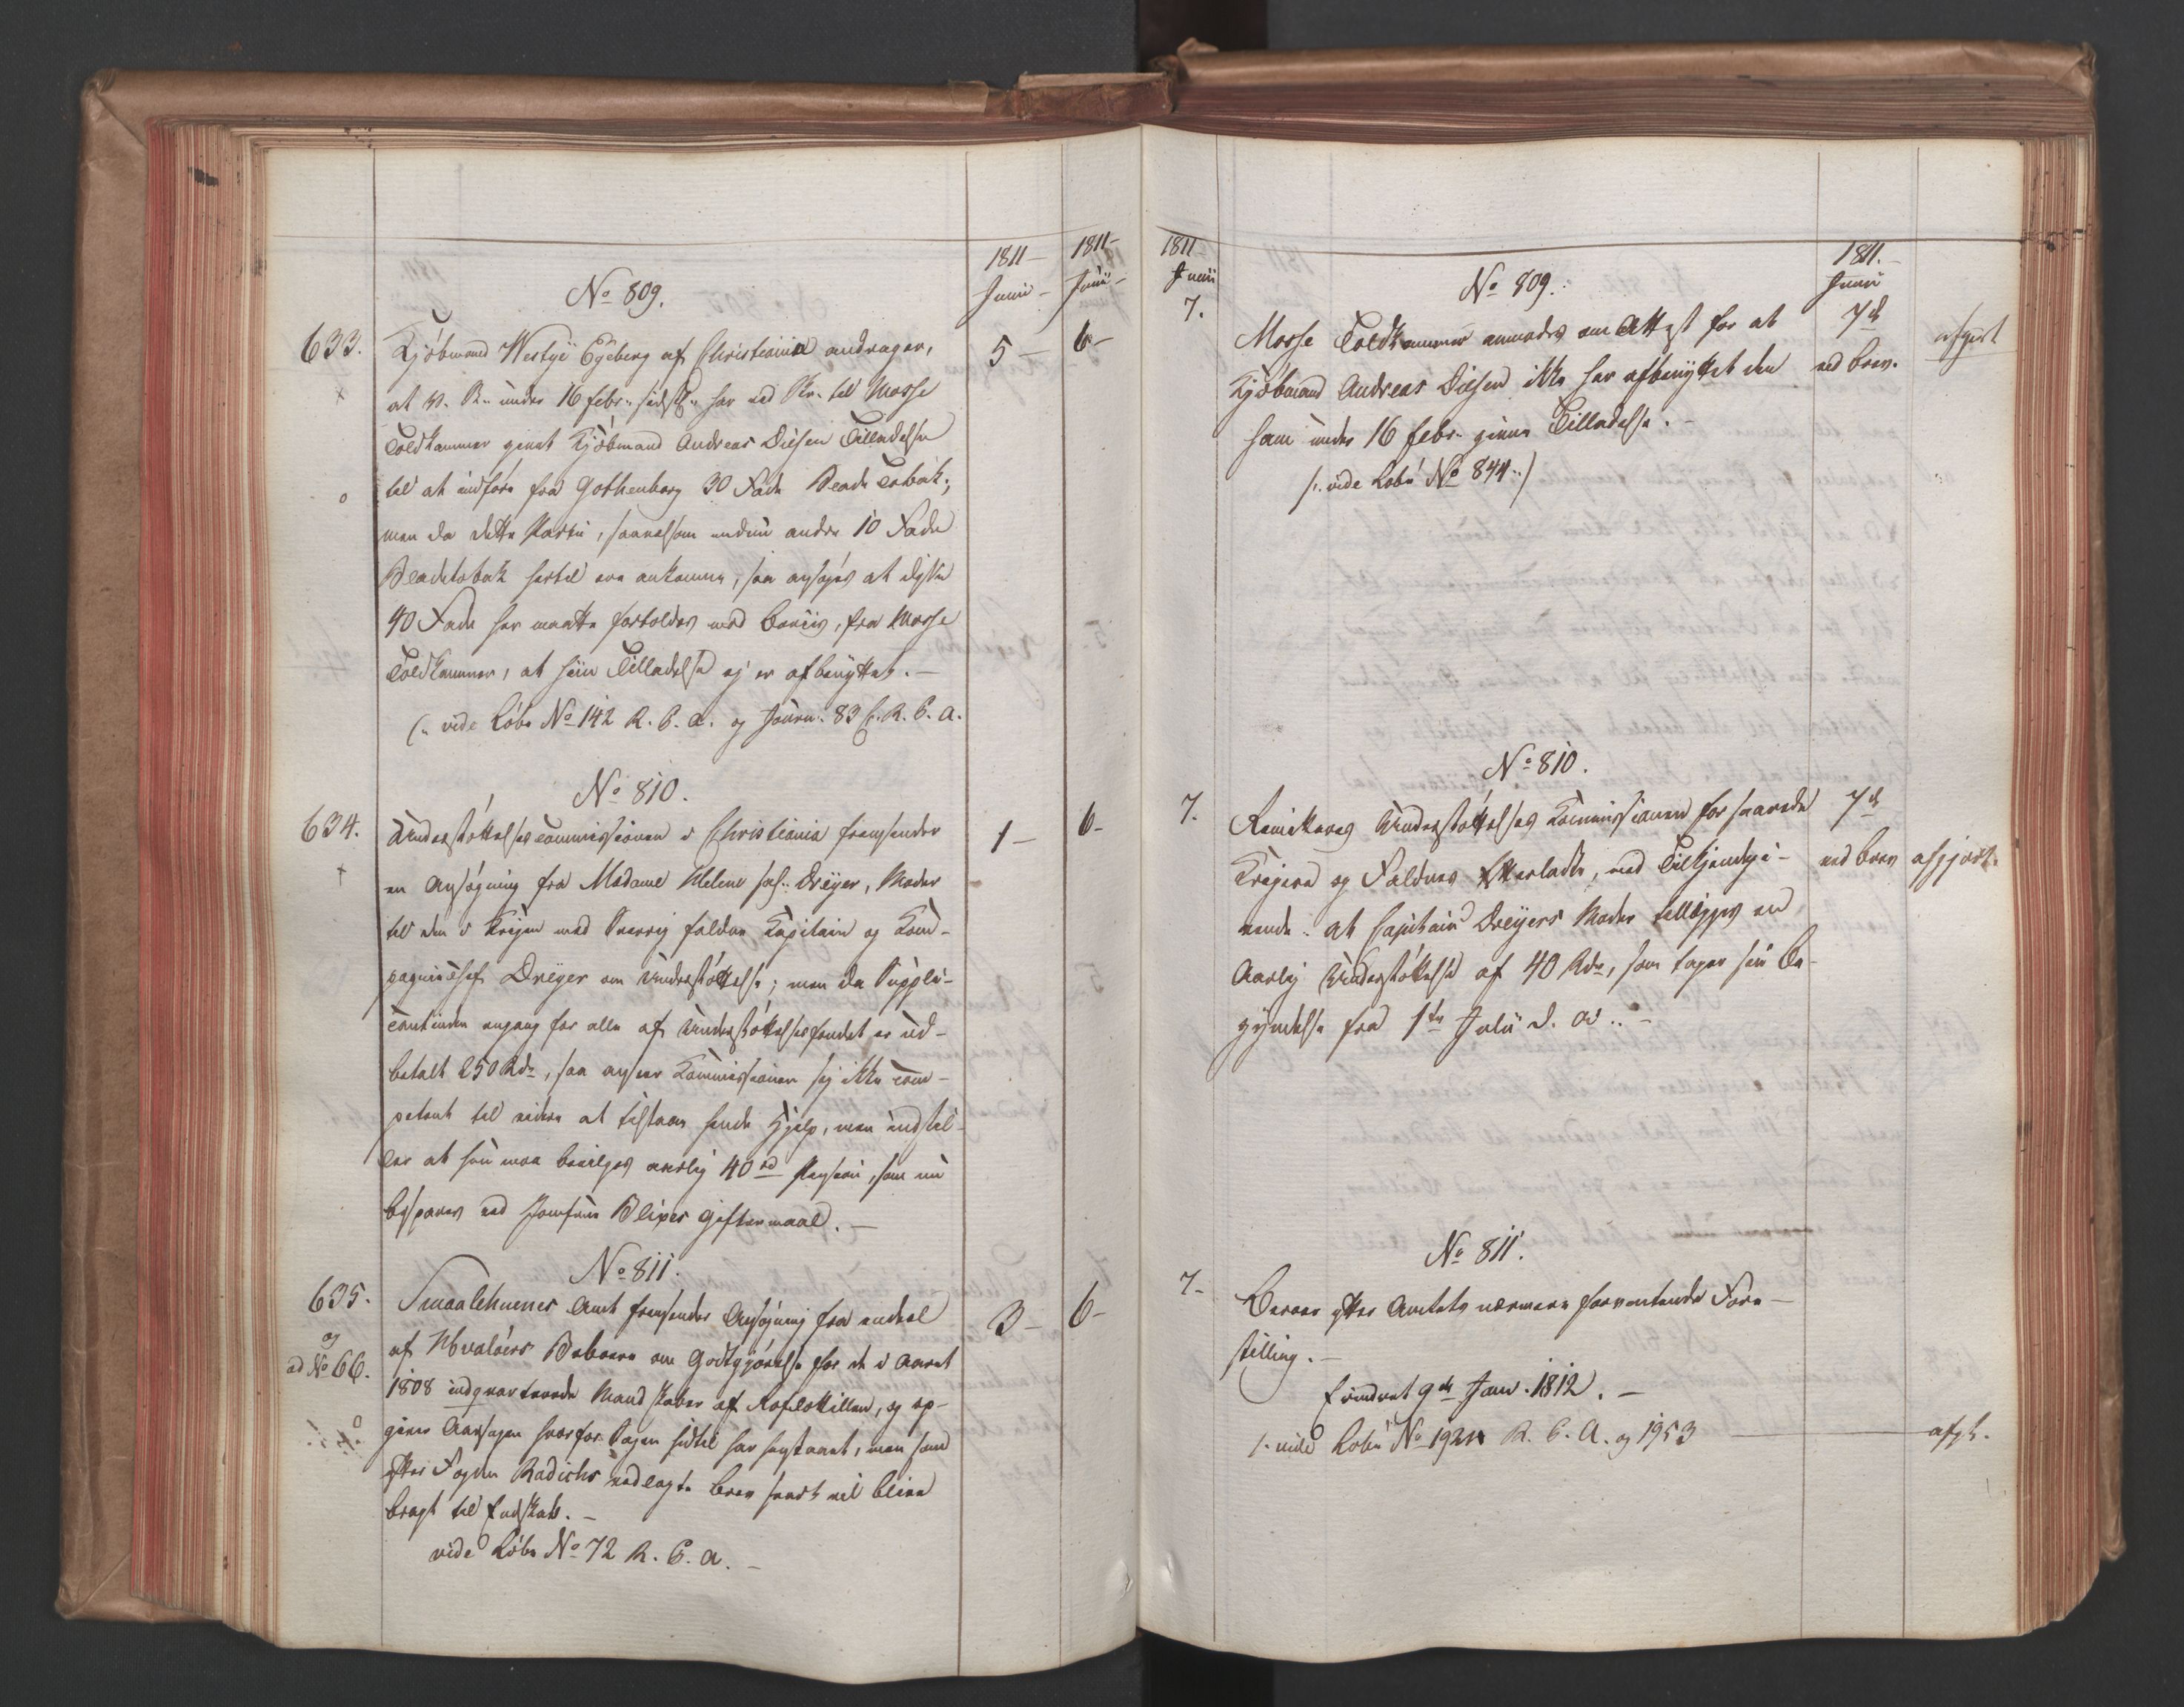 1811—
Juni—
1811—
Juni—
No 809.
633.
Kjøbmand Westye Egeberg af Christiania andrager,
5—
6—
at v. R. under 16 febr. sidstl. har ved Skr. til Mosse
Toldkammer givet Kjøbmand Andreas Diesen Tilladelse
til at indføre fra Gothenborg 30 Fade Blade Tobak;
men da dette Partie, saavelsom endnu andre 10 Fade
Bladetobak hertil ere ankomne, saa ansøges at disse
40 Fade her maatte fortoldes med Beviis, fra Mosse
Toldkammer, at hiin Tilladelse ej er afbenyttet.—
(: vide Løbe No 142 R. C. A. og Journ. 83 C. R. C. A.
No 810.
634.
Understøttelsescommissionen i Christiania fremsender
1—
6—
en Ansøgning fra Madame Melene sal. Dreyer, Moder
til den i Krigen med Sverrig faldne Kapitain og Kom-
pagniechef Dreyer om Understøttelse; men da Suppli-
cantinden engang for alle af Understøttelsesfondet er ud-
betalt 250 Rdr, saa anseer Kommissionen sig ikke com-
petent til videre at tilstaae hende Hjelp, men indstil-
ler at hun maa bevilges aarlig 40 rd Pension, som nu
bespares ved Jomfrue Blixes Giftermaal.—
No 811.
635.
og
ad No 66.
Smaalehnenes Amt fremsender Ansøgning fra endeel
3—
6—
af Hvaløers Beboere om Godtgjørelse for de i Aaret
1808 indqvarterede Mandskaber af Roeflotillen, og op-
giver Aarsagen hvorfor Sagen hidtil har henstaaet, men som
efter Fogden Radichs vedlagte Brev snart vil blive
bragt til Endskab.—
vide Løbe No 72 R. C. A.—
1811
Junii
7.
No 809.
1811.
Junii
Mosse Toldkammer anmodes om Attest for at
7de
ved Brev.
afgjort
Kjøbmand Andreas Diesen ikke har afbenyttet den
ham under 16 febr. givne Tilladelse.—
/: vide Løbe No 844 :/
No 810.
7.
Understøttelses Kommissionen for saarede
7de
Krigere og Faldnes Efterladte, med Tilkjendegi-
ved Brev
afgjort.
vende: at Capitain Dreyers Moder tillægges en
Aarlig Understøttelse af 40 Rdr, som tager sin Be-
gyndelse fra 1te Julii d. A.—
No 811.
7.
Beroer efter Amtets nærmere forventende Fore-
stilling.—
Erindret 9de Janv. 1812.—
/: vide Løbe No 1921 R. C. A. og 1953
afgt.